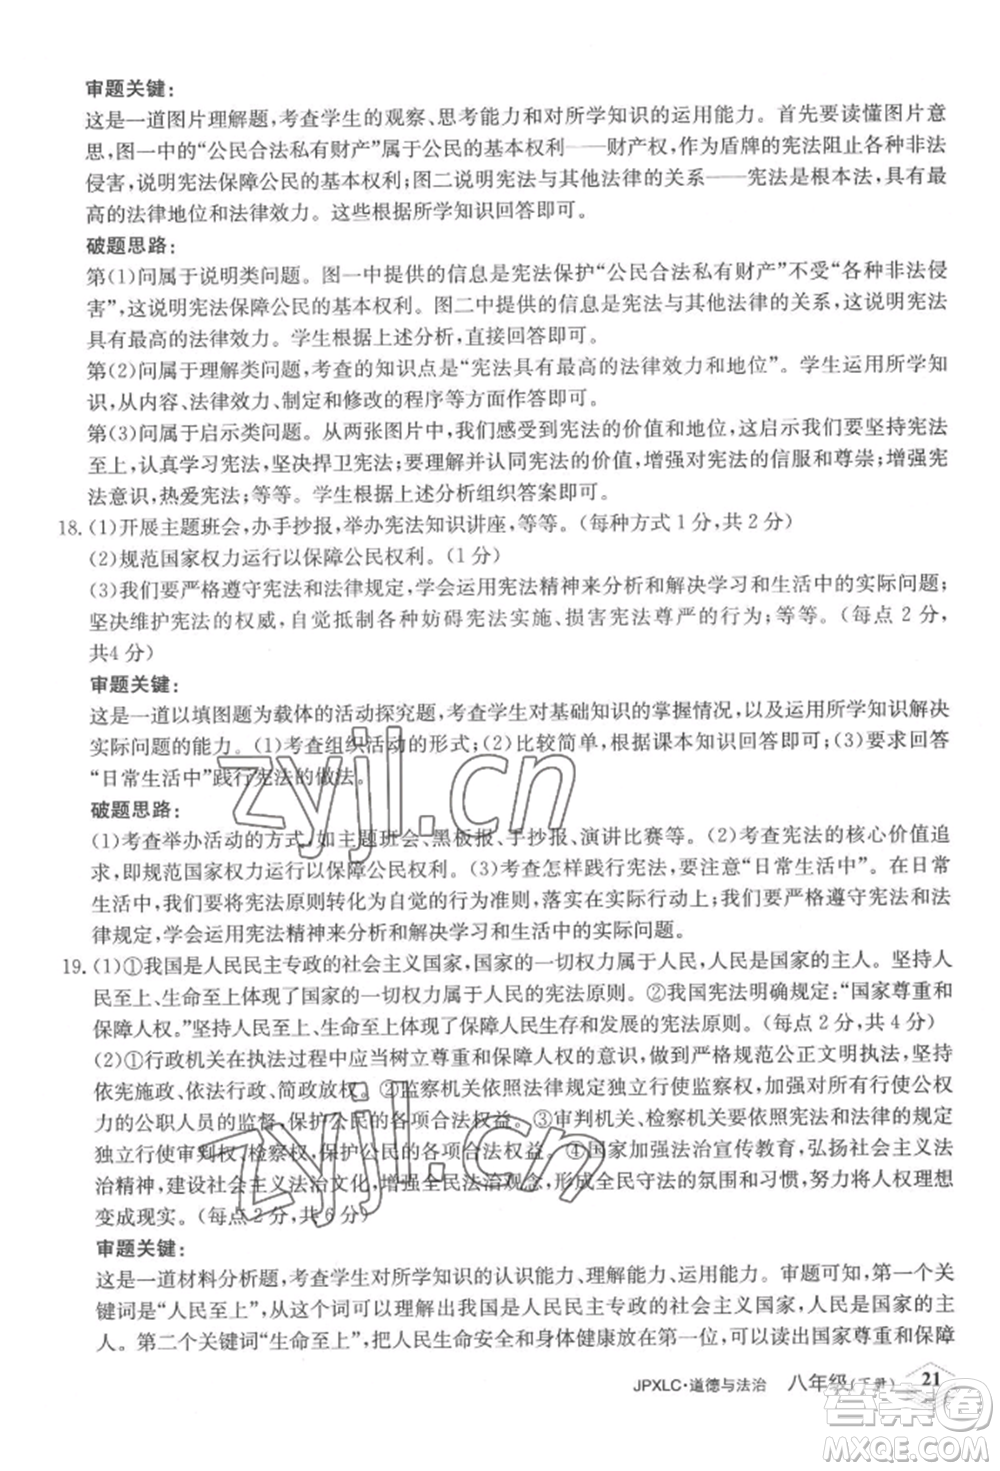 审题关键:
这是一道图片理解题,考查学生的观察、思考能力和对所学知识的运用能力。首先要读懂图片意
思,图一中的“公民合法私有财产”属于公民的基本权利——财产权,作为盾牌的宪法阻止各种非法
侵害,说明宪法保障公民的基本权利;图二说明宪法与其他法律的关系——宪法是根本法,具有最
高的法律地位和法律效力。这些根据所学知识回答即可。
破题思路:
第(1)问属于说明类问题。图一中提供的信息是宪法保护“公民合法私有财产”不受“各种非法侵
害”,这说明宪法保障公民的基本权利。图二中提供的信息是宪法与其他法律的关系,这说明宪法
具有最高的法律效力。学生根据上述分析,直接回答即可。
第(2)问属于理解类问题,考查的知识点是“宪法具有最高的法律效力和地位”。学生运用所学知
识,从内容、法律效力、制定和修改的程序等方面作答即可。
第(3)问属于启示类问题。从两张图片中,我们感受到宪法的价值和地位。这启示我们要坚持宪法
至上,认真学习宪法,坚决捍卫宪法;要理解并认同宪法的价值,增强对宪法的信服和尊崇;增强宪
法意识,热爱宪法;等等。学生根据上述分析组织答案即可。
18.(1)开展主题班会,办手抄报,举办宪法知识讲座,等等。(每种方式1分,共2分)
(2)规范国家权力运行以保障公民权利。(1分)
(3)我们要严格遵守宪法和法律规定,学会运用宪法精神来分析和解决学习和生活中的实际问题;
坚决维护宪法的权威,自觉抵制各种妨碍宪法实施、损害宪法尊严的行为;等等。(每点2分,
共4分)
审题关键:
这是一道以填图题为载体的活动探究题,考查学生对基础知识的掌握情况,以及运用所学知识解决
实际问题的能力。(1)考查组织活动的形式;(2)比较简单,根据课本知识回答即可;(3)要求回答
“日常生活中”践行宪法的做法。
破题思路:
(1)考查举办活动的方式,如主题班会、黑板报、手抄报、演讲比赛等。(2)考查宪法的核心价值追
求,即规范国家权力运行以保障公民权利。(3)考查怎样践行宪法,要注意“日常生活中”。在日常
生活中,我们要将宪法原则转化为自觉的行为准则,落实在行动上。我们要严格遵守宪法和法
律规定,学会运用宪法精神来分析和解决学习和生活中的实际问题。
19.(1)①我国是人民民主专政的社会主义国家,国家的一切权力属于人民,人民是国家的主人。坚持人
民至上、生命至上体现了国家的一切权力属于人民的宪法原则。②我国宪法明确规定:“国家尊重和
保障人权。”坚持人民至上、生命至上体现了保障人民生存和发展的宪法原则。(每点2分,共4分)
(2)①行政机关在执法过程中应当树立尊重和保障人权的意识,做到严格规范公正文明执法,
依宪施政、依法行政、简政放权。②监察机关依照法律规定独立行使监察权,加强对所有行使公权力
的公职人员的监督,保护公民的各项合法权益。③审判机关、检察机关要依照宪法和法律的规定
独立行使审判权、检察权,保护公民的各项合法权益。④国家加强法治宣传教育,弘扬社会主义法
治精神,建设社会主义法治文化,增强全民法治观念,形成全民守法的氛围和习惯,努力将人权理想
变成现实。(每点2分,共6分)
审题关键:
这是一道材料分析题,考查学生对所学知识的认识能力、理解能力、运用能力。审题可知,第一个关
键词是“人民至上”,从这个词可以联系我国是人民民主专政的社会主义国家,人民是国家的主
人。第二个关键词“生命至上”,把人民生命安全和身体健康放在第一位,可以读出国家尊重和保障
JPXLC·道德与法治 八年级(下册) 21
zyjl.cn
zyjl.cn
答案卷
MXQE.COM